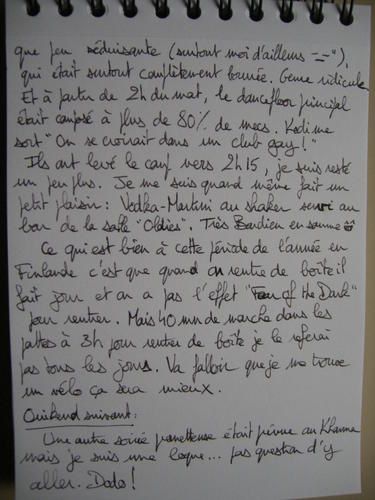 que peu séduisante (surtout moi d'ailleurs =_="),
qui était surtout complètement bourrée. Genre ridicule
Et à partir de 2h du mat, le dancefloor principal
était composé à plus de 80% de mecs. Kodi me
sort "On se croirait dans un club gay!"
Ils ont levé le camp vers 2h15, je suis resté
un peu plus. Je me suis quand même fait un
petit plaisir: Vodka-Martini au shaker servi au
bar de la salle "Oldies". Très Bondien en somme
Ce qui est bien à cette période de l'année en
Finlande c'est que quand on rentre de boîte il
fait jour et on a pas l'effet "Fear of the Dark"
pour rentrer. Mais 40 mn de marche dans les
pattes à 3h pour rentrer de boîte je le referai
pas tous les jours. Va falloir que je me trouve
un vélo ça sera mieux.
Ouikend suivant:
Une autre soirée prometteuse était prévue au Khanna
mais je suis une loque... pas question d'y
aller. Dodo!